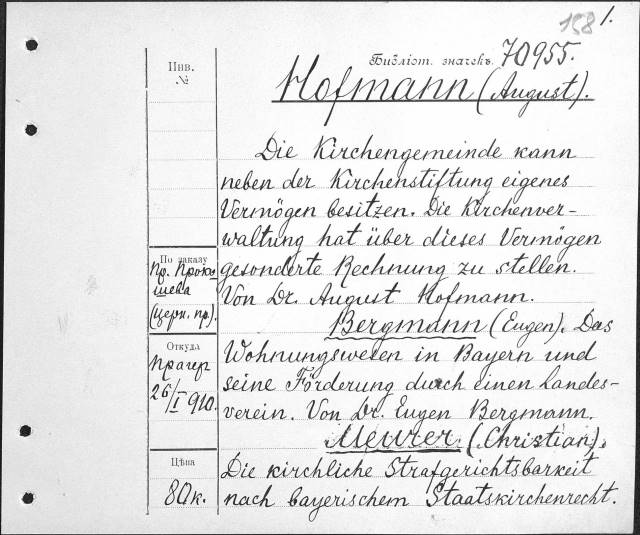 158 1.
Библіот. значекъ 70955.
Инв.
№
Hofmann (August).
Die Kirchengemeinde kann
neben der Kirchenstiftung eigenes
Vermögen besitzen. Die Kirchenver-
waltung hat über dieses Vermögen
По заказу
Пр. Проко-
шева
(церк. пр.).
gesonderte Rechnung zu stellen.
Von Dr. August Hofmann.
Bergmann (Eugen). Das
Откуда
Прагер
26/I 910.
Wohnungswesen in Bayern und
seine Förderung durch einen Landes-
verein. Von Dr. Eugen Bergmann.
Meurer (Christian).
Цѣна
80 к.
Die kirchliche Strafgerichtsbarkeit
nach bayerischem Staatskirchenrecht.